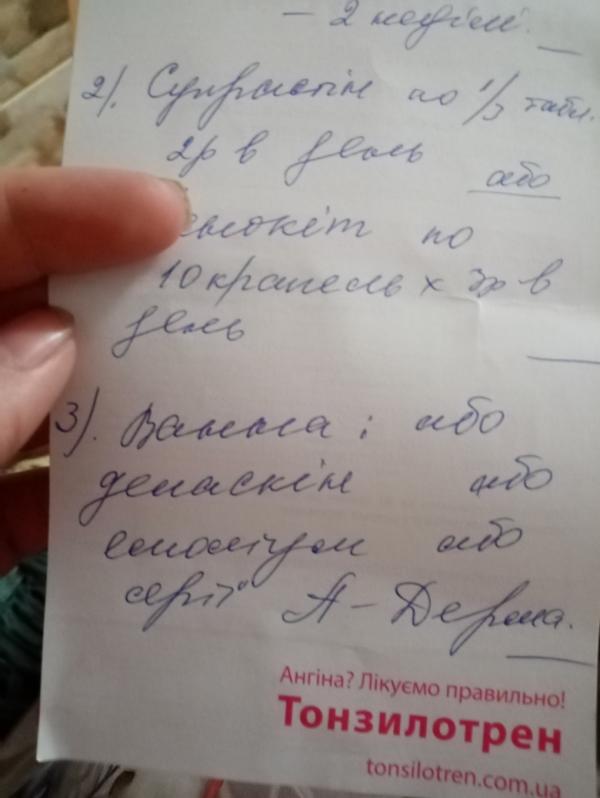 — 2 неділі.
2). Супрастін по 1/3 табл.
2р в день або
по
10 крапель х 3р в
день
3). Ванна: або
демаскін або
емоліум або
серії А-Дерма.
Ангіна? Лікуємо правильно!
Тонзилотрен
tonsilotren.com.ua